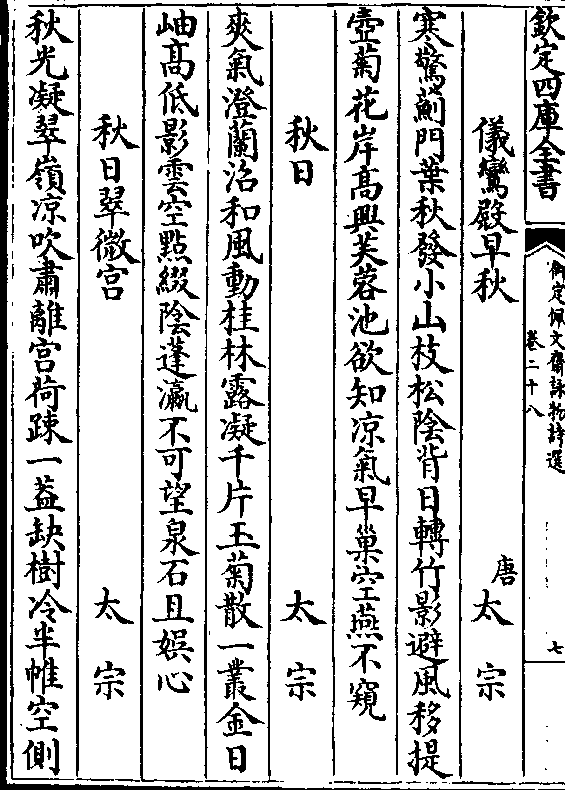 欽定四庫全書
御定佩文齋詠物詩選
卷二十八
七
儀鸞殿早秋
唐太宗
寒驚薊門葉秋發小山枝松陰背日轉竹影避風移提
壺菊花岸髙興芙蓉池欲知凉氣早巢空燕不窺
秋日
太宗
爽氣澄蘭沼和風動桂林露凝千片玉菊散一叢金日
岫髙低影雲空點綴陰蓬瀛不可望泉石且娯心
秋日翠微宫
太宗
秋光凝翠嶺凉吹肅離宫荷踈一葢缺樹冷半帷空側